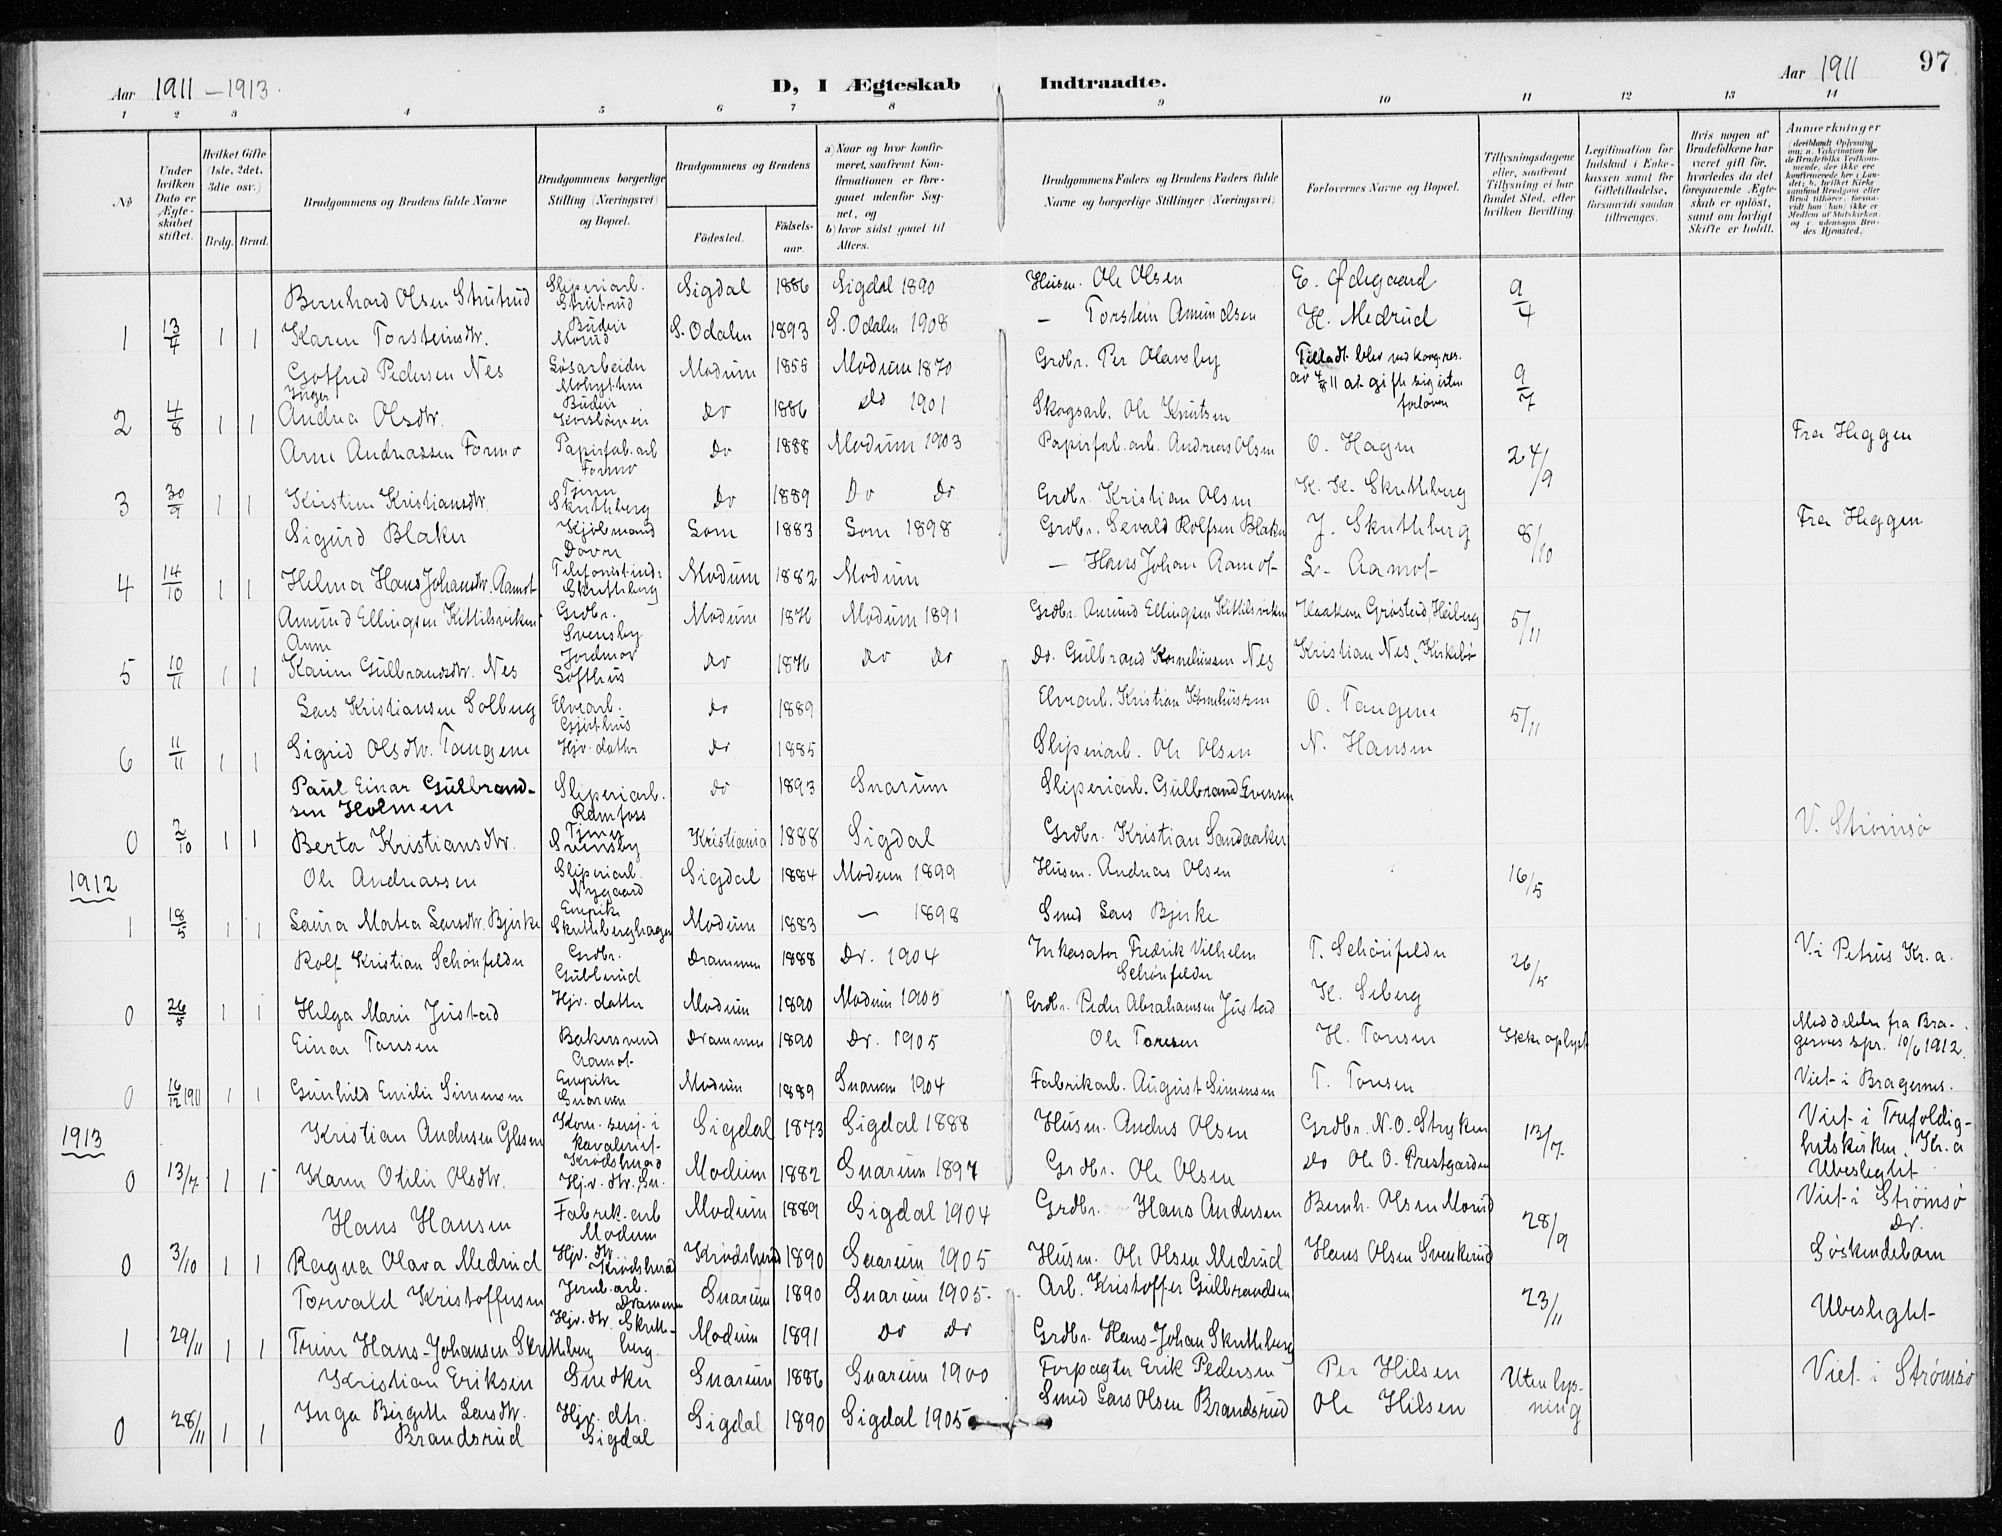 Aar 1911 – 1913. D, I Ægteskab Indtraadte. Aar 1911 97
1 2 3 4 5 6 7 8 9 10 11 12 13 14
№ Under hvilken Dato er Ægteskabet stiftet. Hvilket Gifte (1ste, 2det, 3die osv.) Brdg. Brud. Brudgommens og Brudens fulde Navne Brudgommens borgerlige Stilling (Næringsvei) og Bopæl. Brudgommens og Brudens Fødested. Fødselsaar. a) Naar og hvor konfirmeret, saafremt Konfirmationen er foregaaet udenfor Sognet, og b) hvor sidst gaaet til Alters. Brudgommens Faders og Brudens Faders fulde Navne og borgerlige Stillinger (Næringsvei) Forlovernes Navne og Bopæl. Tillysningsdagene eller, saafremt Tillysning ei har fundet Sted, efter hvilken Bevilling. Legitimation for Indskud i Enkekassen samt for Giftetilladelse, forsaavidt saadan tiltrænges. Hvis nogen af Brudefolkene har været gift før, hvorledes da det foregaaende Ægteskab er opløst, samt om lovligt Skifte er holdt. Anmerkninger
Bernhard Olsen Strutrud Sliperiarb. Strutrud Sigdal 1886 Sigdal 1890 Husm. Ole Olsen E. Ødegaard 9/4
1 13/4 1 1 Karen Torsteinsdtr. Budeie Morud S. Odalen 1893 S. Odalen 1908 – Torstein Amundsen H. Medrud
Gotfred Pedersen Nes Løsarbeider Modum 1855 Modum 1870 Grdbr. Per Olavsby Tilladt blev ved kong. res. av 4/8 11 at gifte sig uten forlover 9/7
2 4/8 1 1 Inger Andrea Olsdtr. Budeie Do 1886 Do 1901 Skogsarb. Ole Knutsen
Arne Andreassen Formo Papirfab. arb Formo Do 1888 Modum 1903 Papirfab. arb. Andreas Olsen O. Hagen 24/9 Fra Heggen
3 30/9 1 1 Kirstine Kristiansdtr. Tjen. Skuttleberg Do 1889 Do Do Grdbr. Kristian Olsen K. K. Skuttleberg
Sigurd Blaker Kjøbmand Dovre Lom 1883 Lom 1898 Grdbr. Sevald Rolfsen Blaker J. Skuttleberg 8/10 Fra Heggen
4 14/10 1 1 Helma Hans Johansdtr. Aamot Telefonistinde Skuttleberg Modum 1882 Modum – Hans Johan Aamot L. Aamot
Amund Ellingsen Kittilsviken Grdbr. Svensby Modum 1876 Modum 1891 Grdbr. Amund Ellingsen Kittilsviken Haaken Grøstad, Heiberg 5/11
5 10/11 1 1 Anne Karine Gulbrandsdtr. Nes Jordmor Lofthus Do 1876 Do Do Do. Gulbrand Kornelissen Nes Kristian Nes, Kirkebø
Lars Kristiansen Solberg Elvearb. Gjethus Do 1889 Elvearb. Kristian Kornelissen O. Tangene 5/11
6 11/11 1 1 Sigrid Olsdtr. Tangene Hjv. datter Do 1885 Sliperiarb. Ole Olsen N. Hansen
Paul Einar Gulbrandsen Holmen Sliperiarb. Ramfoss Do 1893 Snarum Sliperiarb. Gulbrand Evensen
0 2/10 1 1 Berta Kristiansdtr. Tjen. Svensby Kristiania 1888 Sigdal Grdbr. Kristian Sandaaker V. Strømsø
1912 Ole Andreassen Sliperiarb. Nygaard Sigdal 1884 Modum 1899 Husm. Andreas Olsen 16/5
1 18/5 1 1 Laura Martea Larsdtr. Bjerke Enpike Skuttleberghagen Modum 1883 – 1898 Smed Lars Bjerke
Rolf Kristian Schönfelder Grdbr. Gubberud Drammen 1888 Dr. 1904 Inkasator Fredrik Vilhelm Schönfelder T. Schönfelder 26/5 V. i Petrus Kr.a.
0 26/5 1 1 Helga Marie Justad Hjv. datter Modum 1890 Modum 1905 Grdbr. Peder Abrahamsen Justad K. Seberg
Einar Toresen Bakersvend Aamot Drammen 1890 Dr. 1905 Ole Toresen H. Toresen Ikke oplyst Meddelelse fra Bragernes spr. 10/6 1912.
0 16/12 1911 1 1 Gunhild Emilie Simensen Enpike Snarum Modum 1889 Snarum 1904 Fabrikarb. August Simensen T. Toresen Viet i Bragernes.
1913 Kristian Andersen Glesne Kom. serj. i kavaleriet Krødsherad Sigdal 1873 Sigdal 1888 Husm. Anders Olsen Grdbr. N. O. Stryken 13/7 Viet i Trefoldighetskirken, Kr.a
0 13/7 1 1 Karen Otilie Olsdtr. Hjv. dtr. Sn. Modum 1882 Snarum 1897 Grdbr. Ole Olsen Do Ole O. Prestgarden Ubeslegtet
Hans Hansen Fabrik. arb Modum Modum 1889 Sigdal 1904 Grdbr. Hans Andersen Bernh. Olsen Morud 28/9 Viet i Strømsø Dr.
0 3/10 1 1 Ragna Olava Medrud Hjv. dtr. Krødsherad Krødsherad 1890 Snarum 1905 Husm. Ole Olsen Medrud Hans Olsen Svenkerud Søskendebarn
Torvald Kristoffersen Jernb. arb. Drammen Snarum 1890 Snarum 1905. Arb. Kristoffer Gulbrandsen 23/11 Ubeslegtet
1 29/11 1 1 Trine Hans-Johansen Skuttleberg Hjv. dtr. Skuttleberg. Modum 1891 Do Do Grdbr. Hans-Johan Skuttleberg
Kristian Eriksen Snedker Snarum 1886 Snarum 1900 Forpagter Erik Pedersen Per Hilsen Uten lysning Viet i Strømsø
0 28/11 1 1 Inga Birgitte Larsdtr. Brandsrud Hjv. dtr. Sigdal Sigdal 1890 Sigdal 1905 Smed Lars Olsen Brandsrud Ole Hilsen